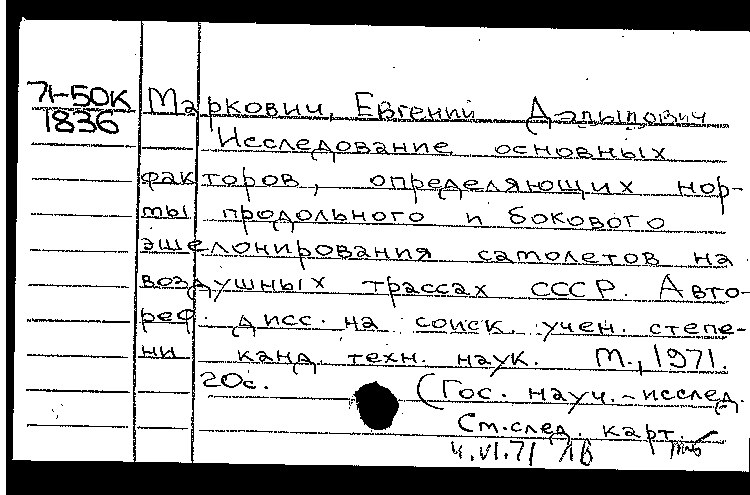 71-50К
1836
Маркович, Евгений Давыдович
Исследование основных
факторов, определяющих нор-
мы продольного и бокового
эшелонирования самолетов на
воздушных трассах СССР. Авто-
реф. дисс. на соиск. учен. степе-
ни канд. техн. наук. М., 1971.
20с. (Гос. науч.-исслед.
См. след. карт.
4.VI.71 ЛВ